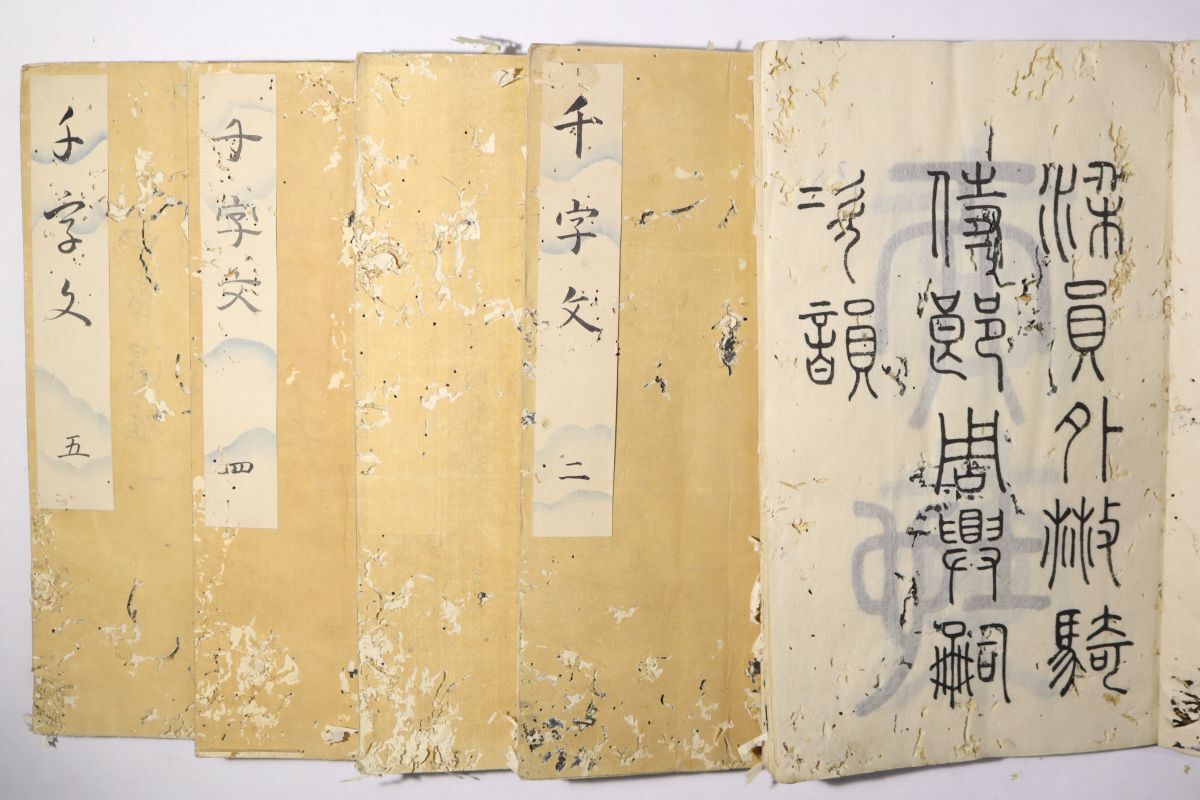 梁員外散騎
侍郎周興嗣
次韻
千字文 二
千字文 四
千字文 五